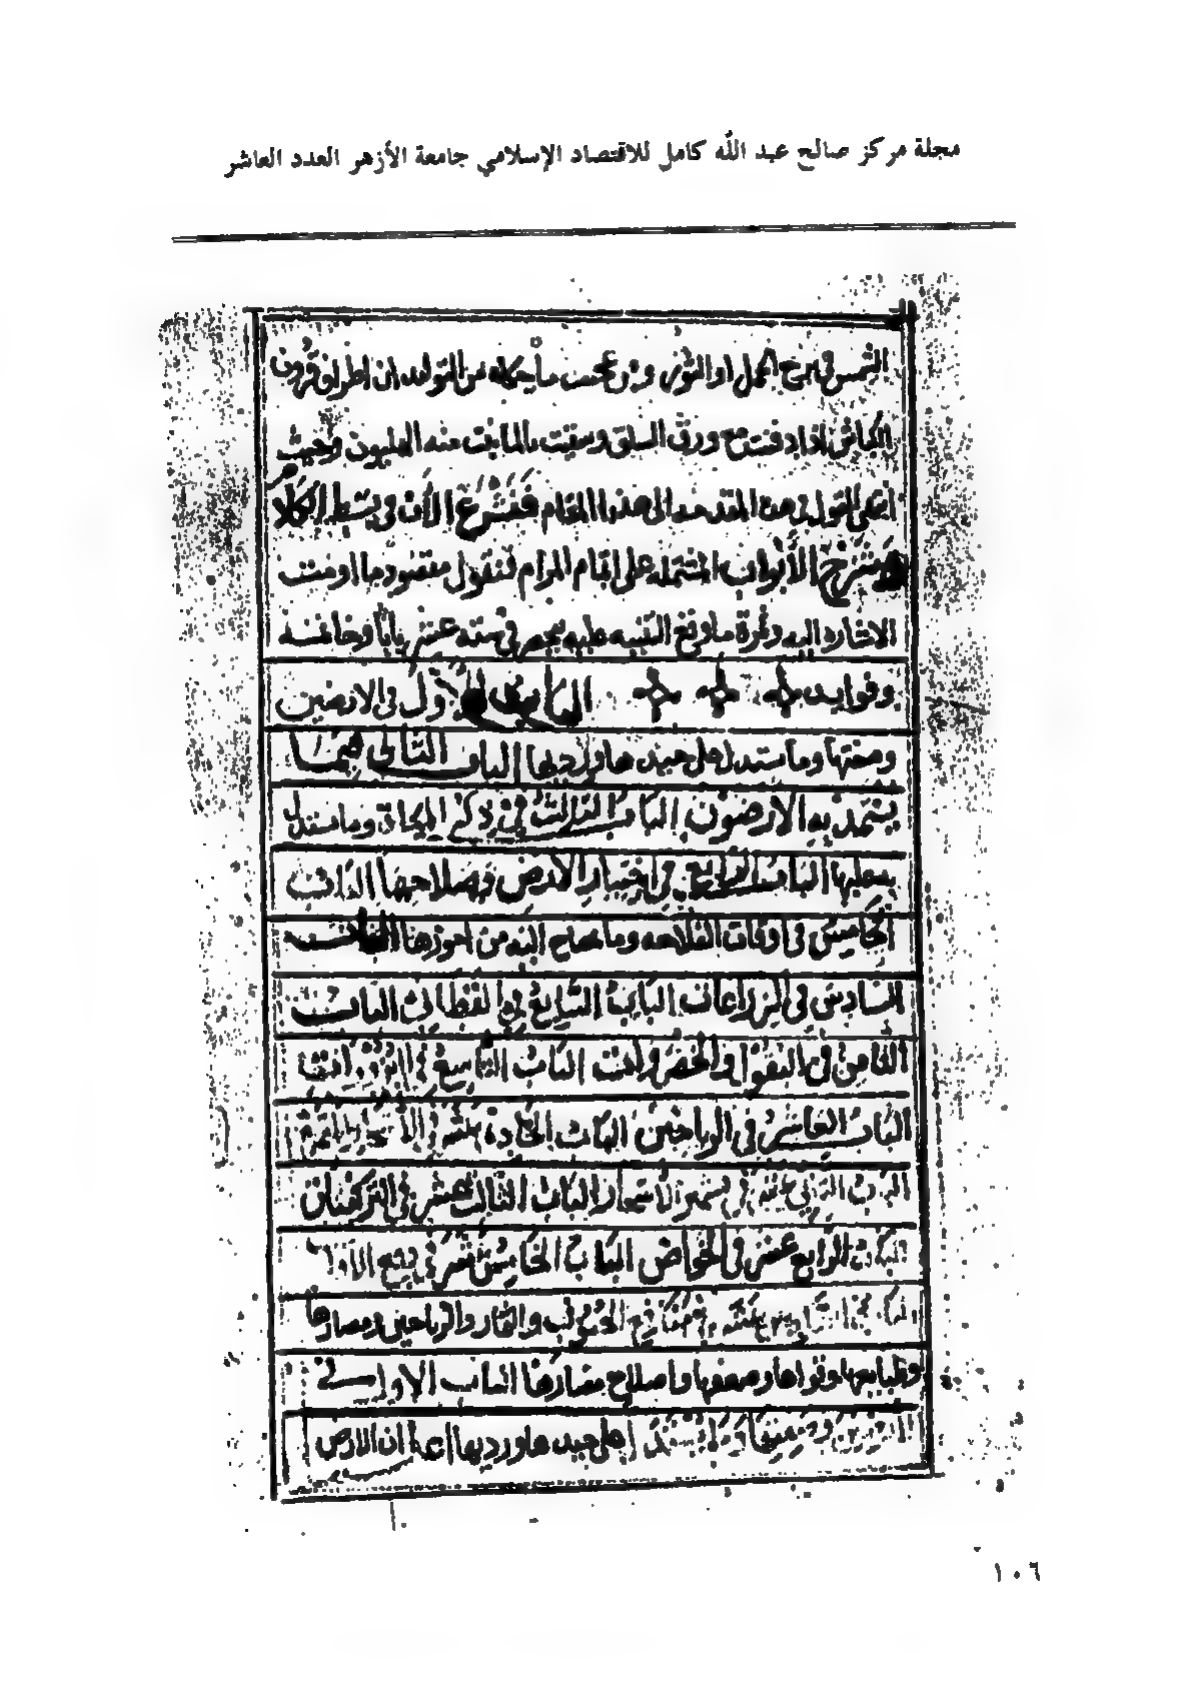 مجلة مركز صالح عبد الله كامل للاقتصاد الإسلامي جامعة الأزهر العدد العاشر
الشمس في برج الحمل او الثور ومن عجيب ما يحكاه من التولد ان اطراف قرون
الكباش اذا دفنت مع ورق السلق وسقيت بالماء نبت منه الهليون وحيث
انتهى القول في هذه المقدمة الى هذا المقام فنشرع الآن في بسط الكلام
وشرح الأبواب المشتملة على اتمام المرام فنقول مقصود ما اومئت
الاشارة اليه وثمرة ما وقع التنبيه عليه ينحصر في ستة عشر بابا وخاتمة
وفوايد الباب الأول في الارضين
وصفتها وما يستدل على جيدها ورديها الباب الثاني فيما
يستمد به الارضون الباب الثالث في ذكر المياه وما يستدل
به عليها الباب الرابع في اختيار الأرض وصلاحها الباب
الخامس في اوقات الفلاحة وما يحتاج اليه من امورها الباب
السادس في الزراعات الباب السابع في القطاني الباب
الثامن في البقول والخضراوات الباب التاسع في
الباب العاشر في الرياحين الباب الحادي عشر في الأشجار المثمرة
الباب الثاني عشر في الاشجار الباب الثالث عشر في التركيبات
الباب الرابع عشر في الخواص الباب الخامس عشر في
الباب السادس عشر في منافع الحبوب والثمار والرياحين ومضارها
وطبايعها وقواها وصفتها واصلاح مضارها الباب الاول في
الارضين وصفتها وما يستدل على جيدها ورديها اعلم ان الارض
١٠٦